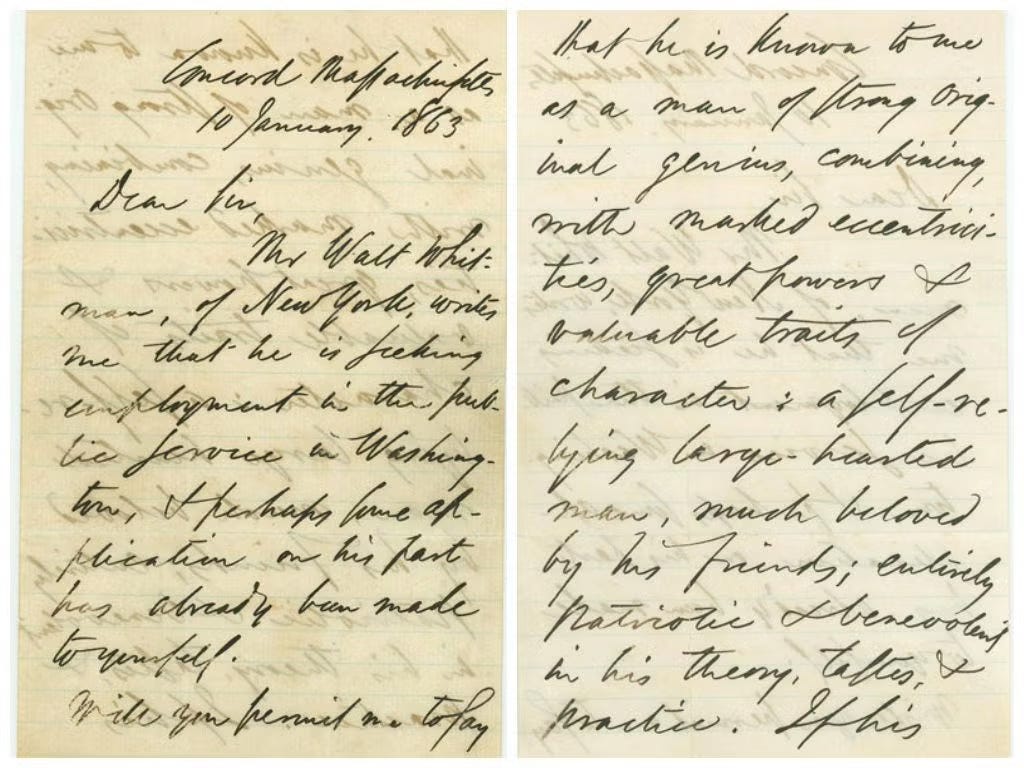 Concord Massachusetts
10 January. 1863
Dear Sir,
Mr Walt Whit-
man, of New York, writes
me that he is seeking
employment in the pub-
lic service in Washing-
ton, & perhaps some ap-
plication on his part
has already been made
to yourself.
Will you permit me to say
that he is known to me
as a man of strong orig-
inal genius, combining,
with marked eccentrici-
ties, great powers &
valuable traits of
character: a self-re-
lying large-hearted
man, much beloved
by his friends; entirely
patriotic & benevolent
in his theory, tastes, &
practice. If his